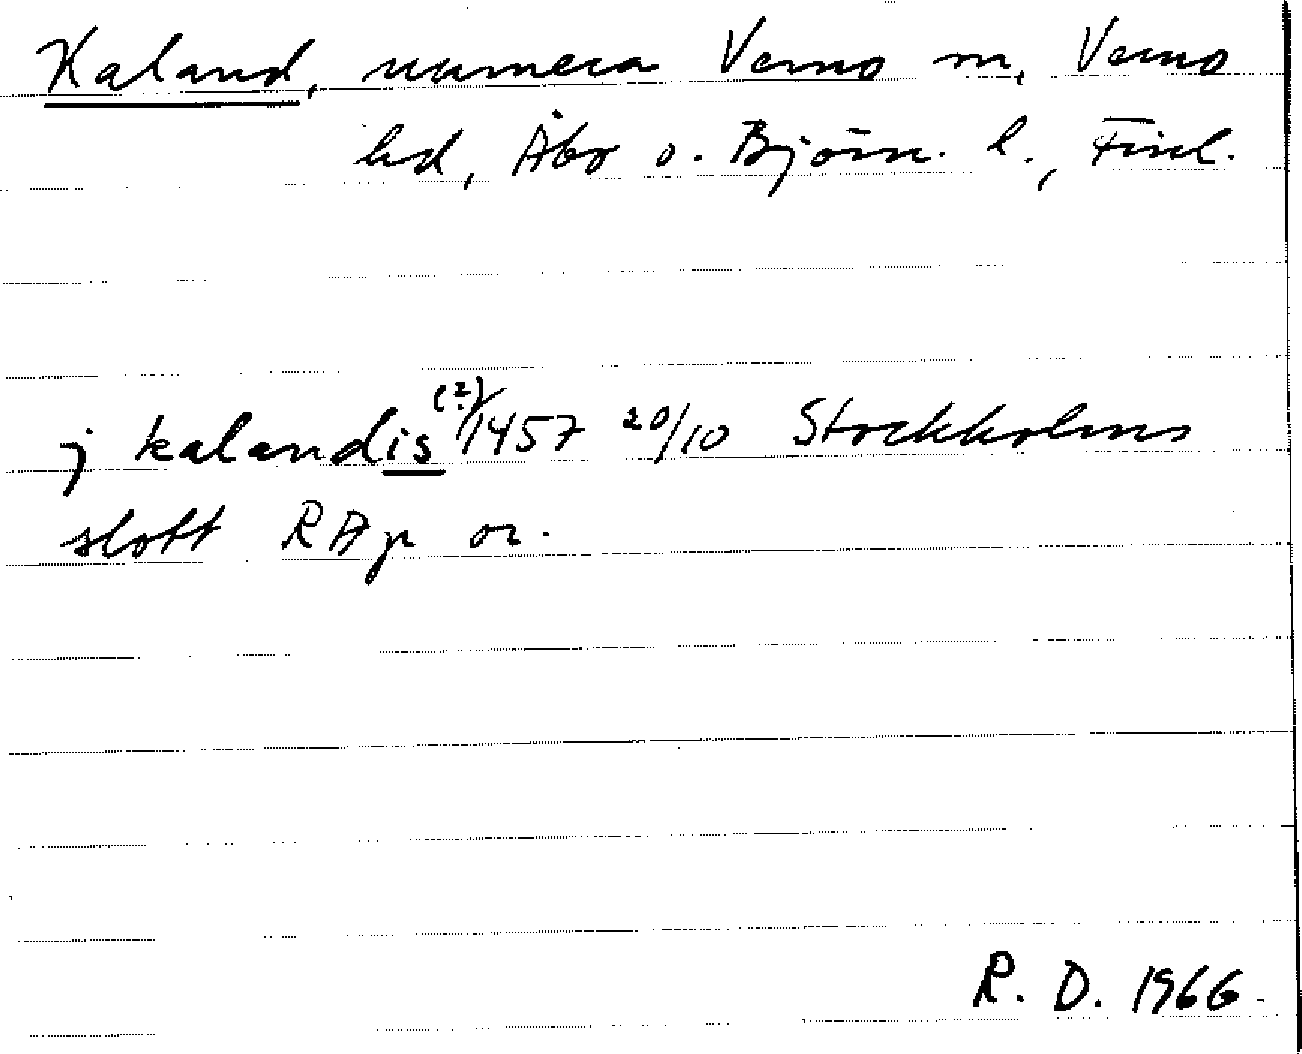 Kaland, numera Vemo m, Vemo
hd, Åbo o. Björn. l., Finl.
j kalandis (?) / 1457 20/10 Stockholms
slott RAp or.
R. D. 1966